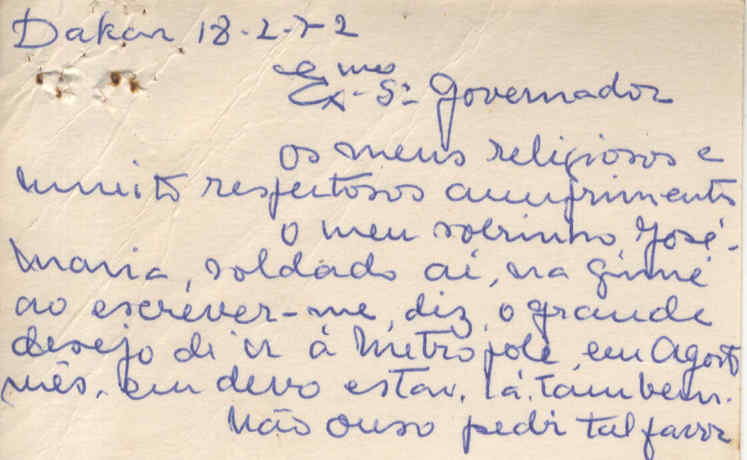 Dakar 18-2-72
Ex.mo Sr. Governador
os meus religiosos e
muito respeitosos cumprimentos
O meu sobrinho José-
Maria, soldado aí, na Guiné
ao escrever-me, diz, o grande
desejo di ir à Metropole, em Agosto
mês, em devo estar, lá, tambem.
Não ouso pedir tal favor